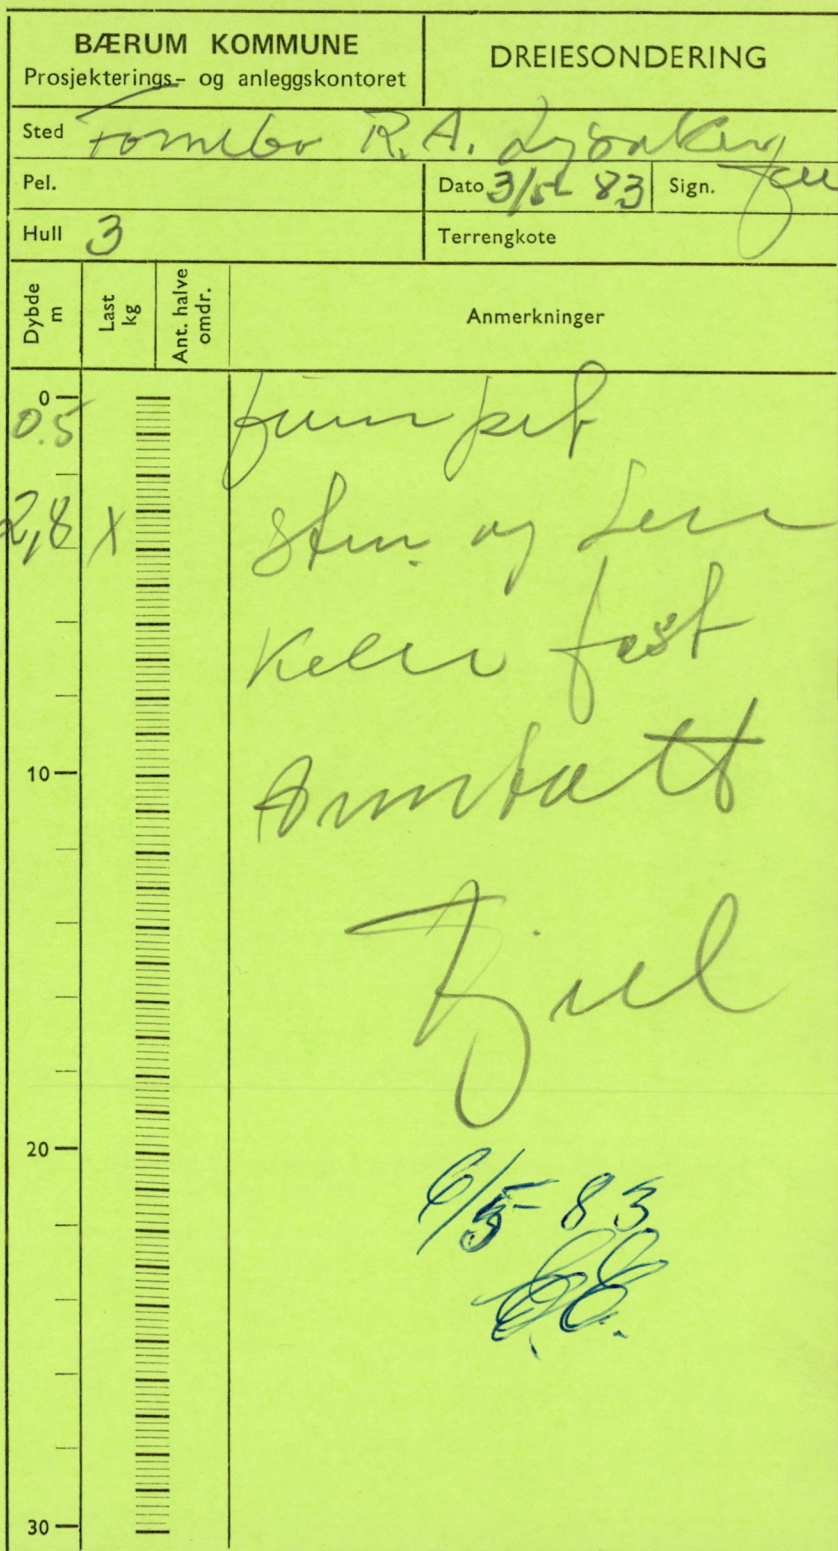 BÆRUM KOMMUNE
Prosjekterings- og anleggskontoret
DREIESONDERING
Sted Fornebo R.A. Lysaker
Pel.
Dato 3/5- 83 Sign.
Hull 3
Terrengkote
Dybde m
Last kg
Ant. halve omdr.
Anmerkninger
0
0.5
2,8 x sten og
fast
10
antatt
Fjel
20
6/5-83
30